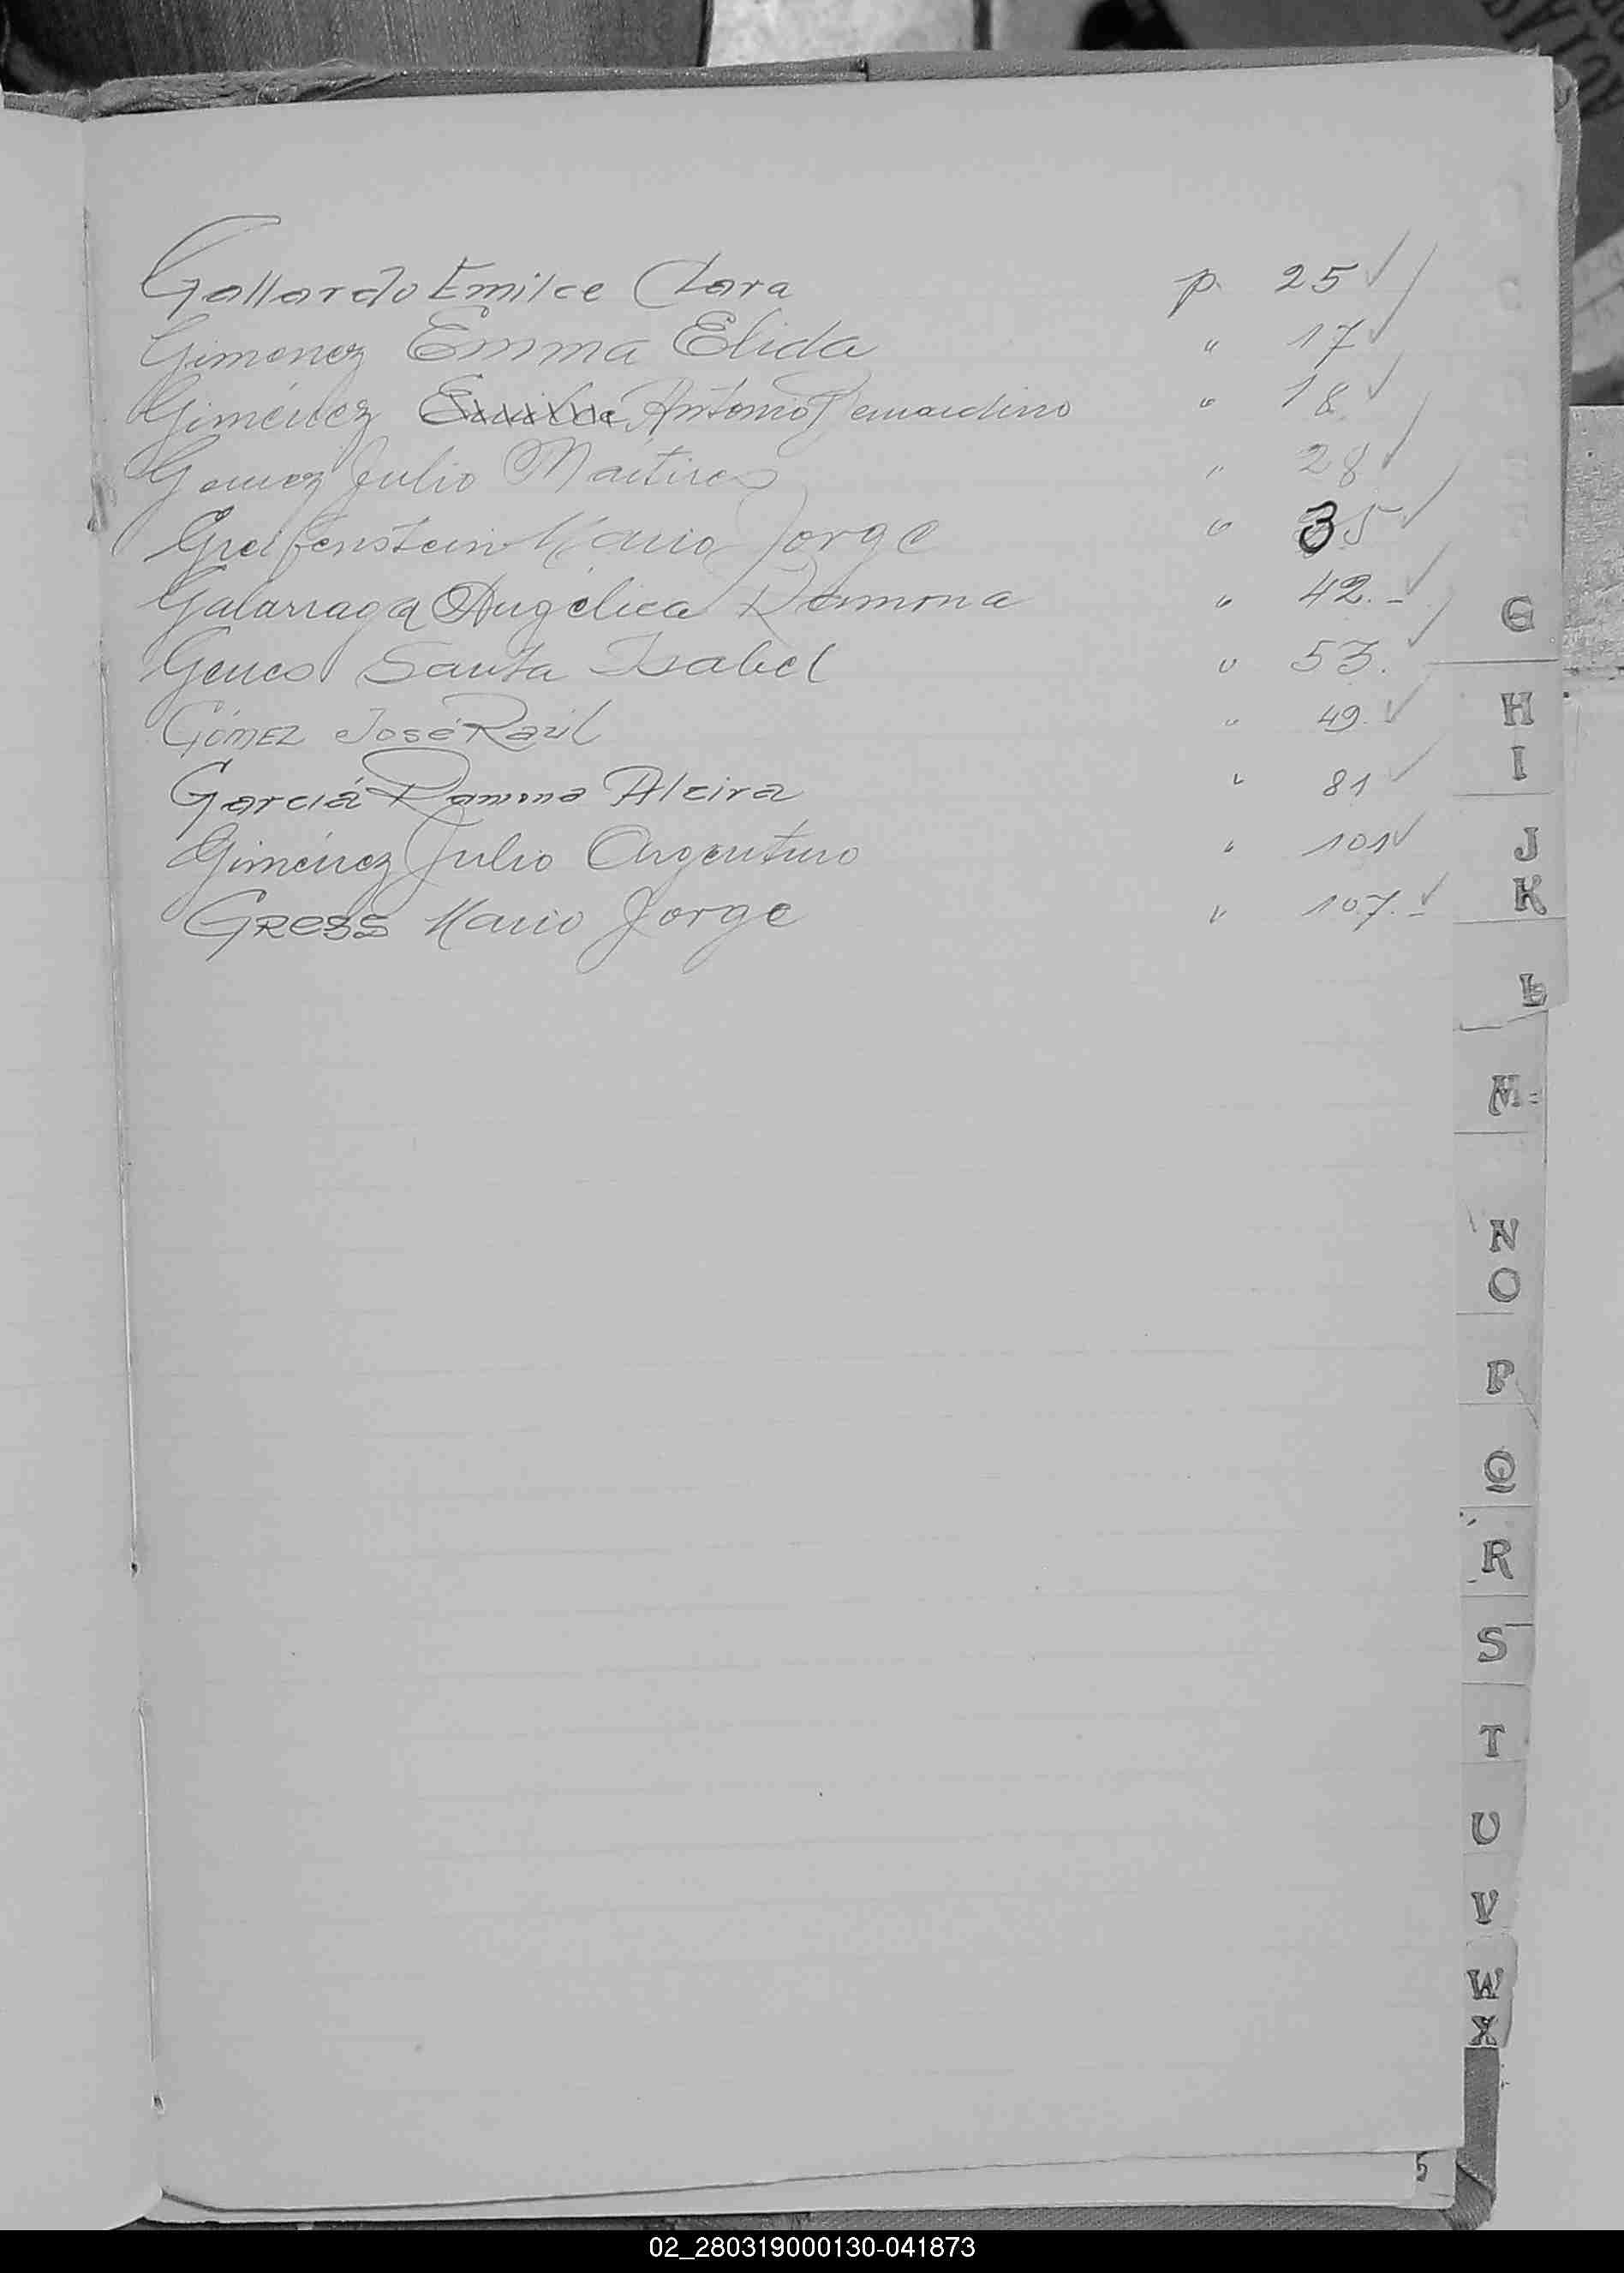 Gallardo Emilce Clara p. 25 ✓
Gimenez Emma Elida " 17 ✓
Giménez Antonio Bernardino " 18 ✓
Gomez Julio Martires " 28 ✓
Greifenstein Mario Jorge " 35 ✓
Galarraga Angélica Ramona " 42.- ✓
Genes Santa Isabel " 53. ✓
Gómez José Raúl " 49. ✓
Garciá Ramona Alcira " 81 ✓
Giménez Julio Argentino " 101 ✓
Gress Mario Jorge " 107.- ✓
G
H
I
J
K
L
M
N
O
P
Q
R
S
T
U
V
W
X
5
02_280319000130-041873